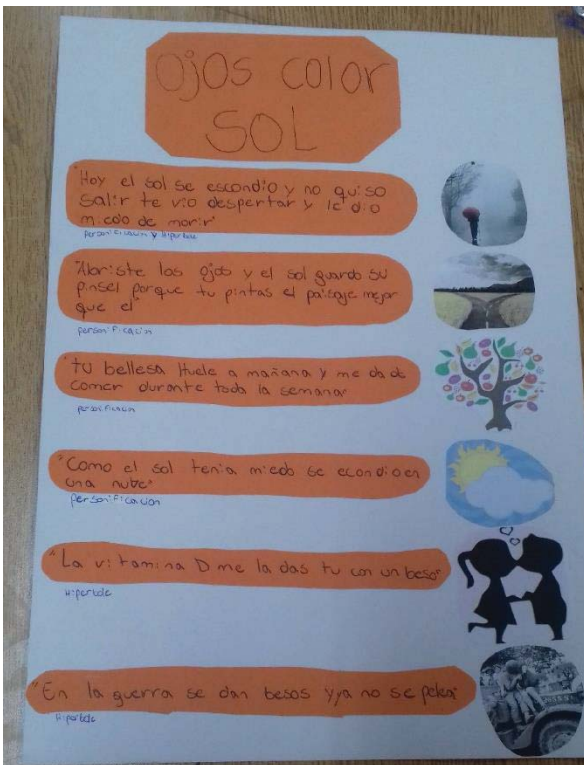 Ojos color
SOL
"Hoy el sol se escondio y no quiso
salir te vio despertar y le dio
miedo de morir"
Personificacion y Hiperbole
"Abriste los ojos y el sol guardo su
pinsel porque tu pintas el paisaje mejor
que el"
personificacion
"tu bellesa Huele a mañana y me da de
comer durante toda la semana"
personificacion
"Como el sol tenia miedo se econdio en
una nube"
personificacion
"La vitamina D me la das tu con un beso"
Hiperbole
"En la guerra se dan besos y ya no se pelea"
Hiperbole